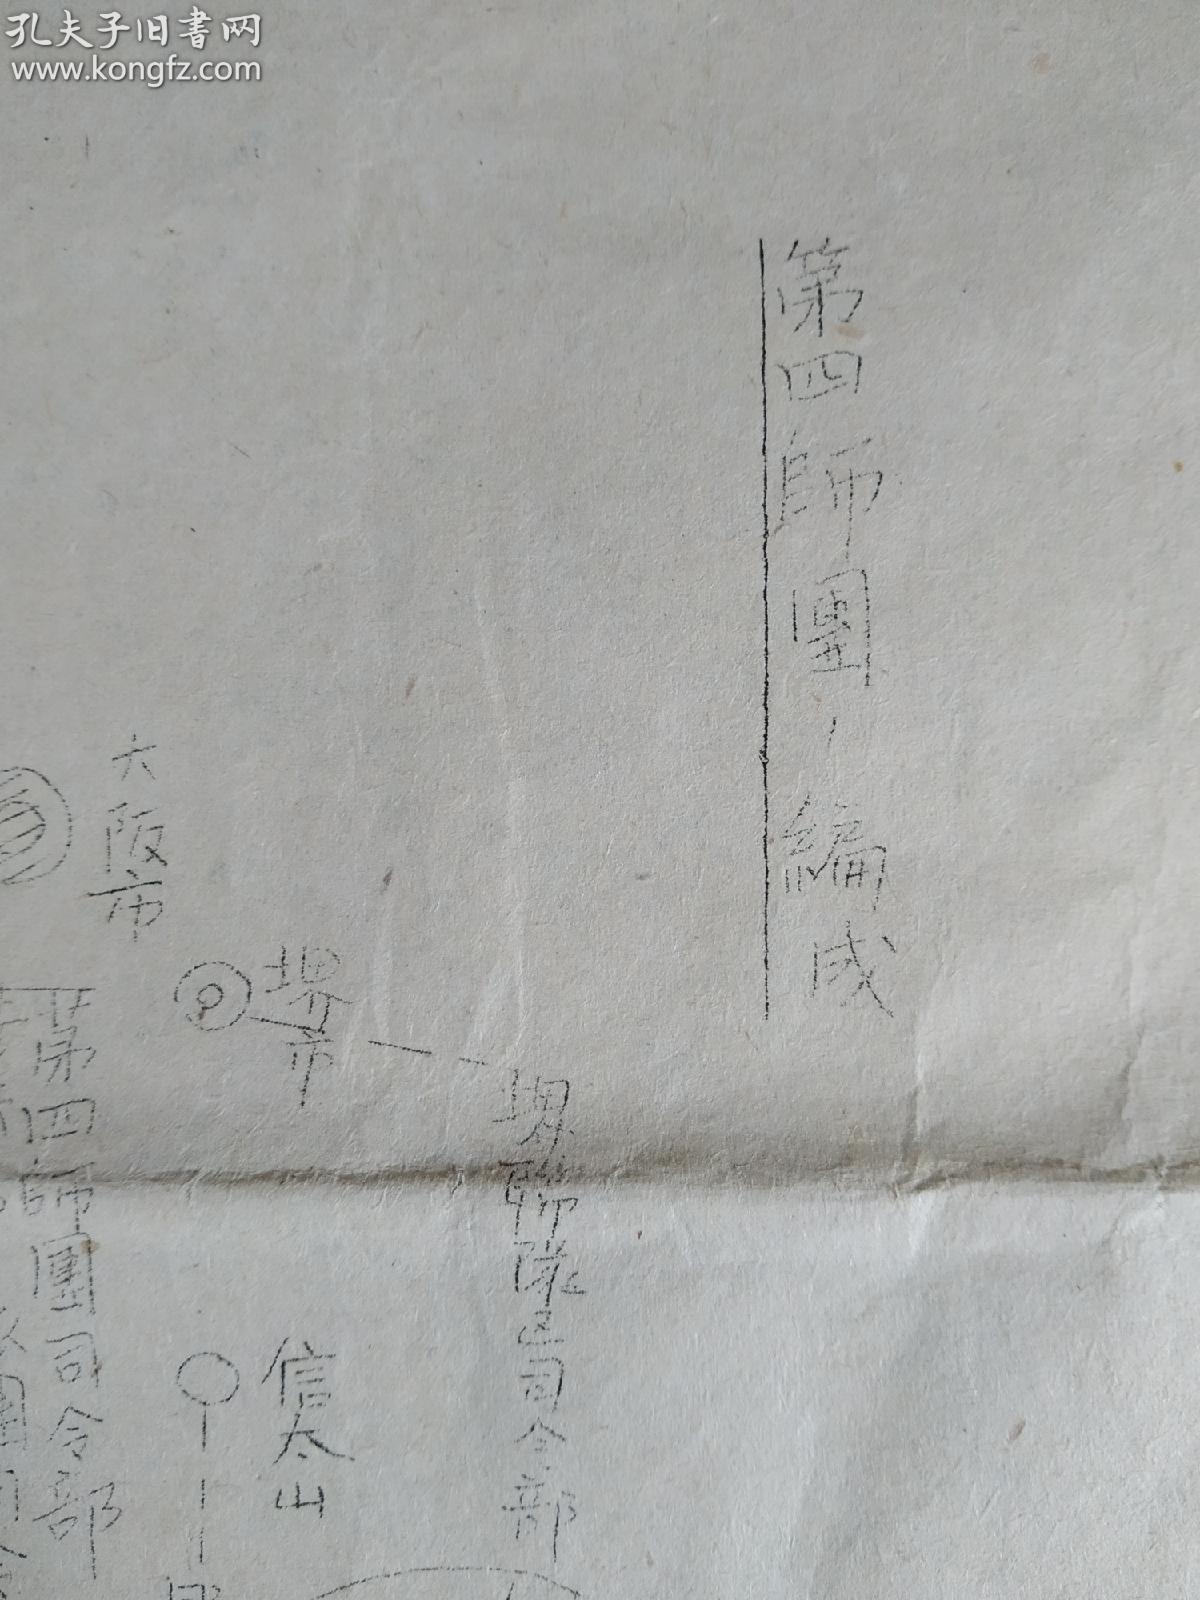 孔夫子旧書网
www.kongfz.com
第四師團ノ編成
堺聯隊区司令部
堺市
信太山
大阪市
第四師團司令部